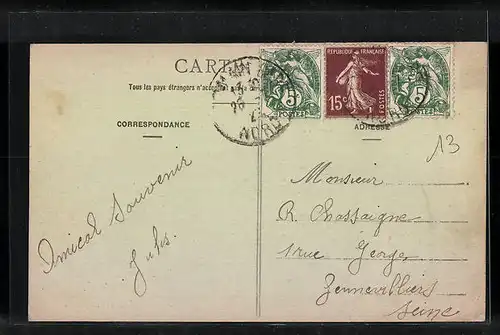 CARTE
Tous les pays étrangers n'acce
CORRESPONDANCE
ADRESSE
5c
POSTES
RÉPUBLIQUE FRANÇAISE
15c
POSTES
5
POSTES
NORD
13
Amical Souvenir
Jules
Monsieur
R. Chassaigne
1 rue George
Gennevilliers
Seine